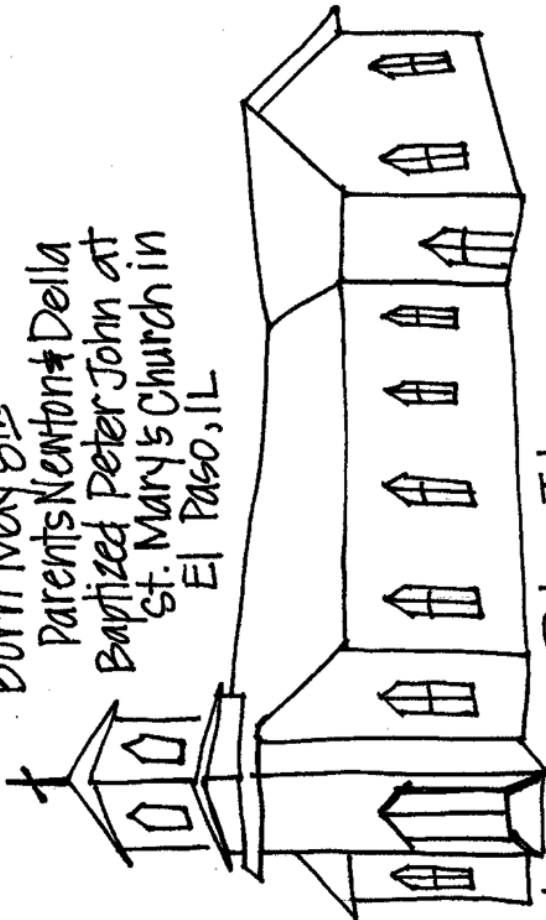 Born May 8th
Parents Newton & Della
Baptized Peter John at
St. Mary's Church in
El Paso, IL